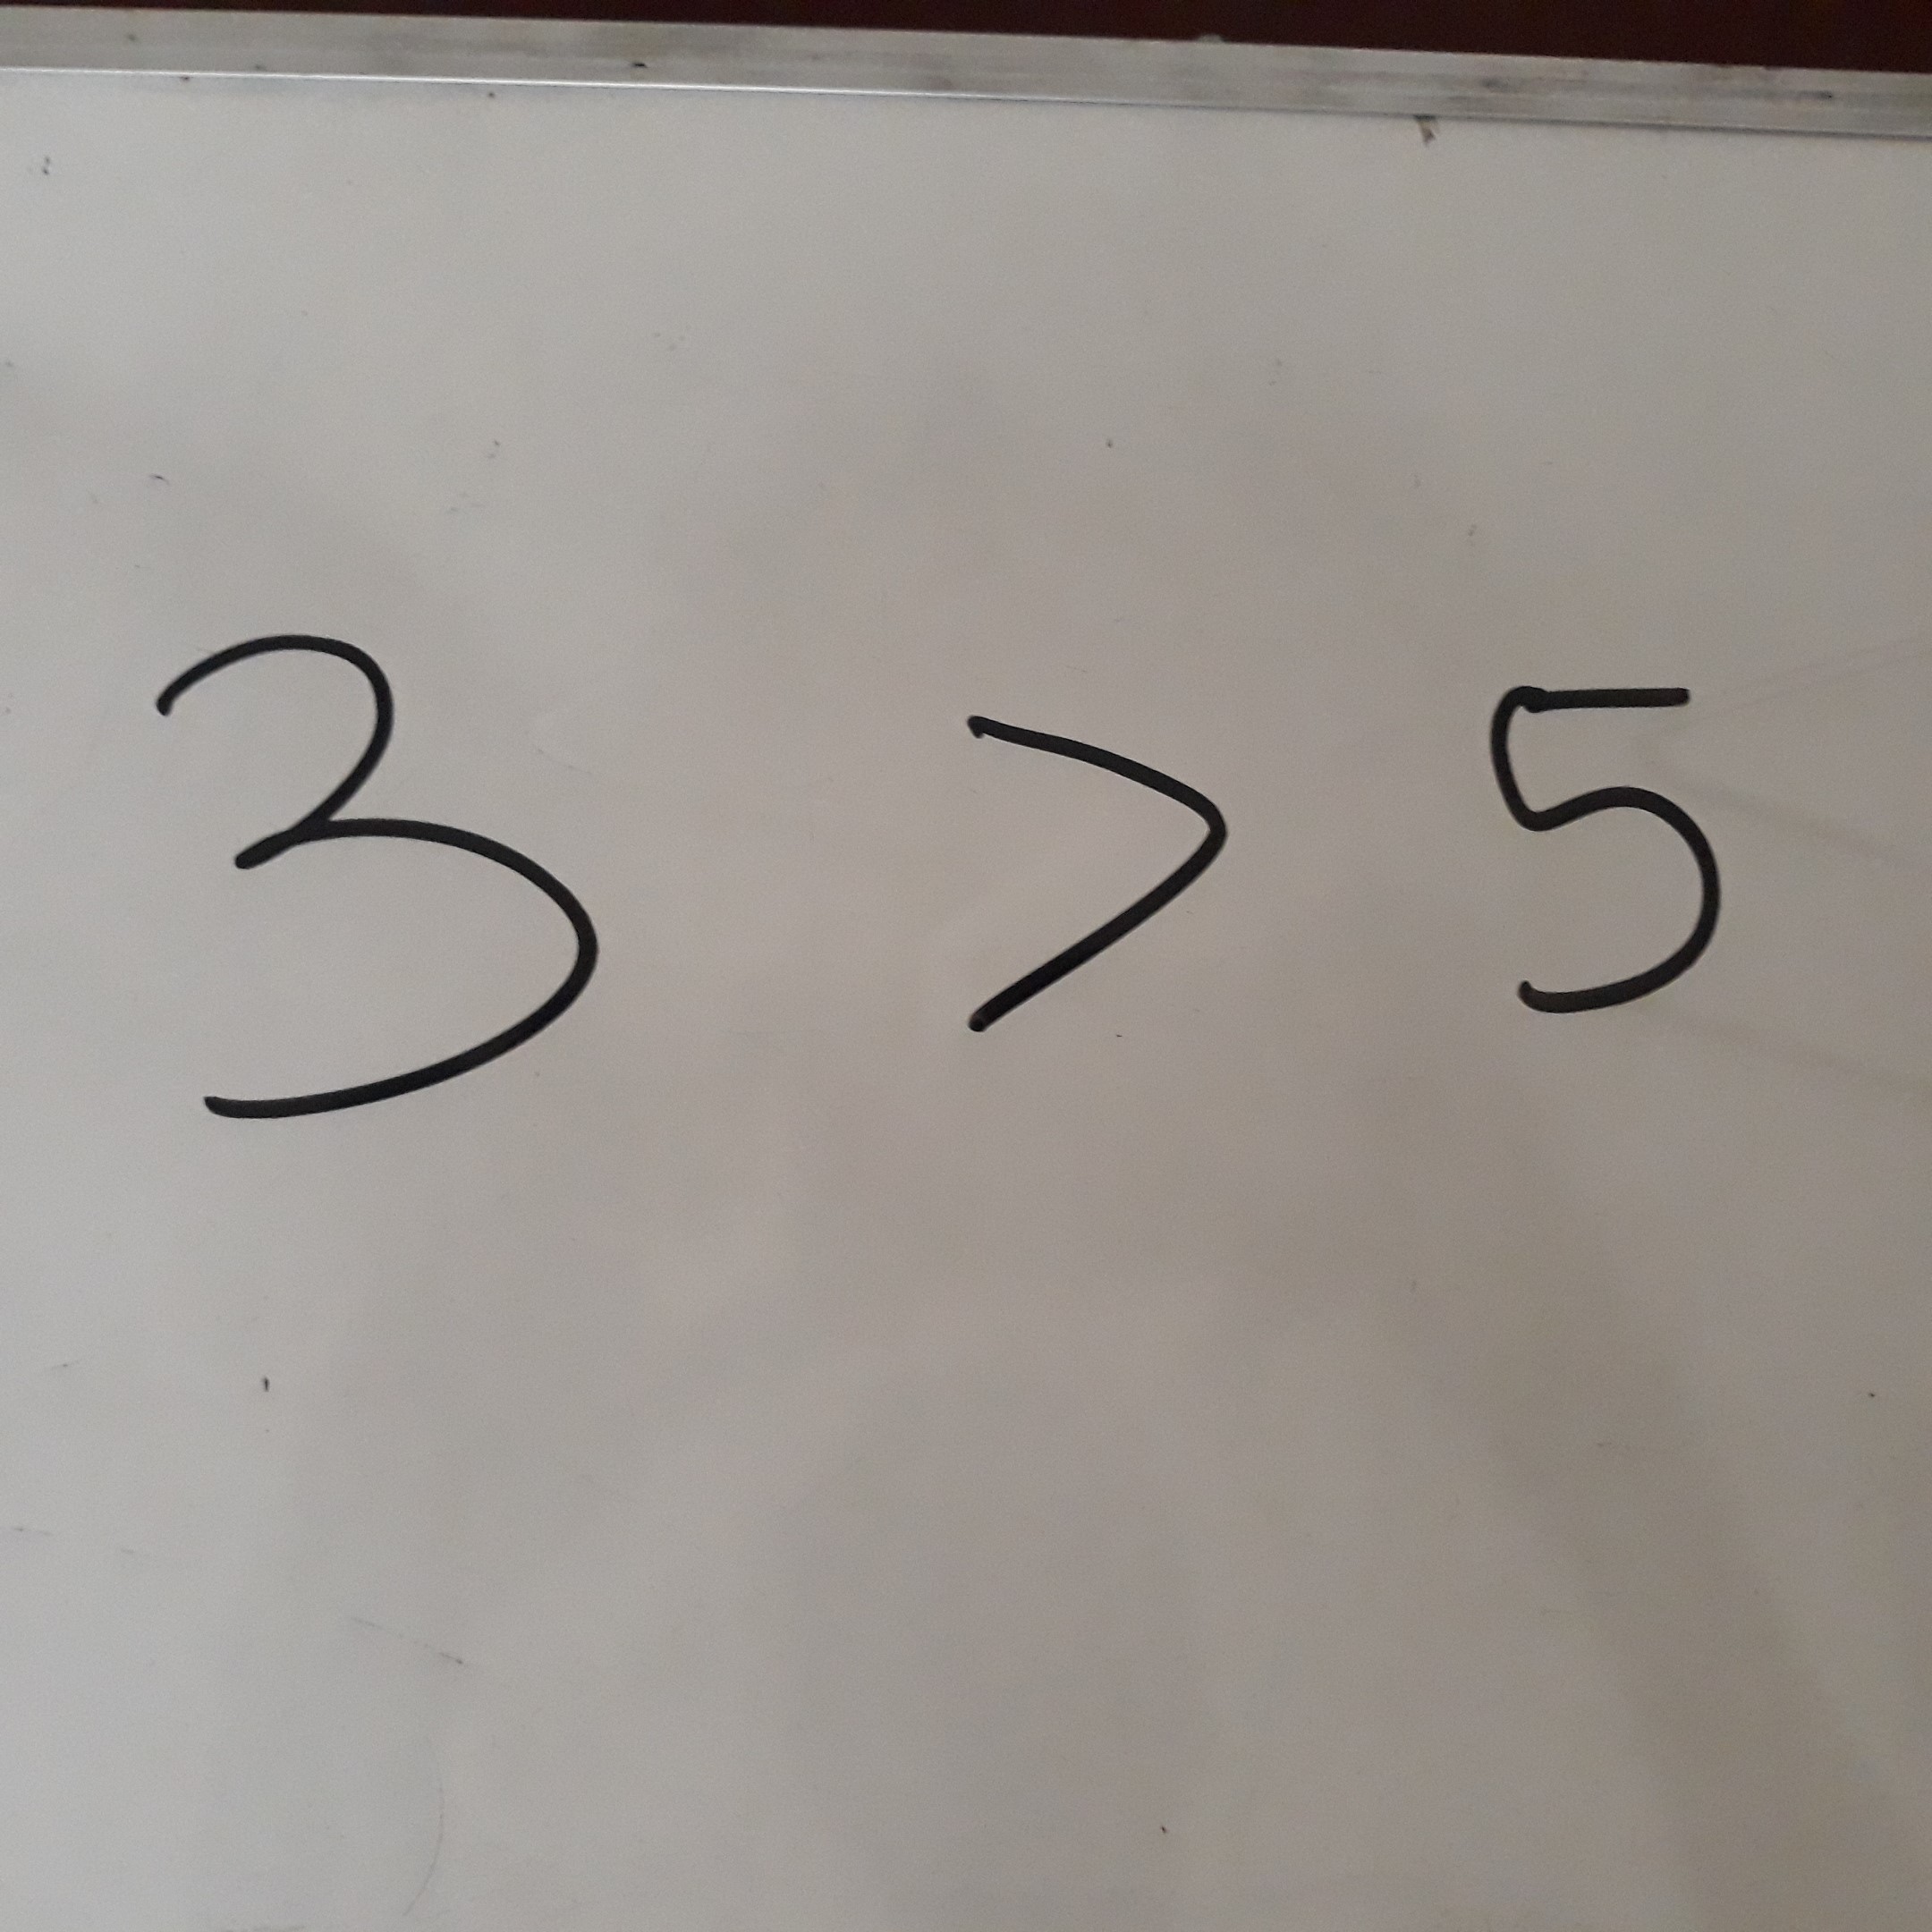 3 > 5